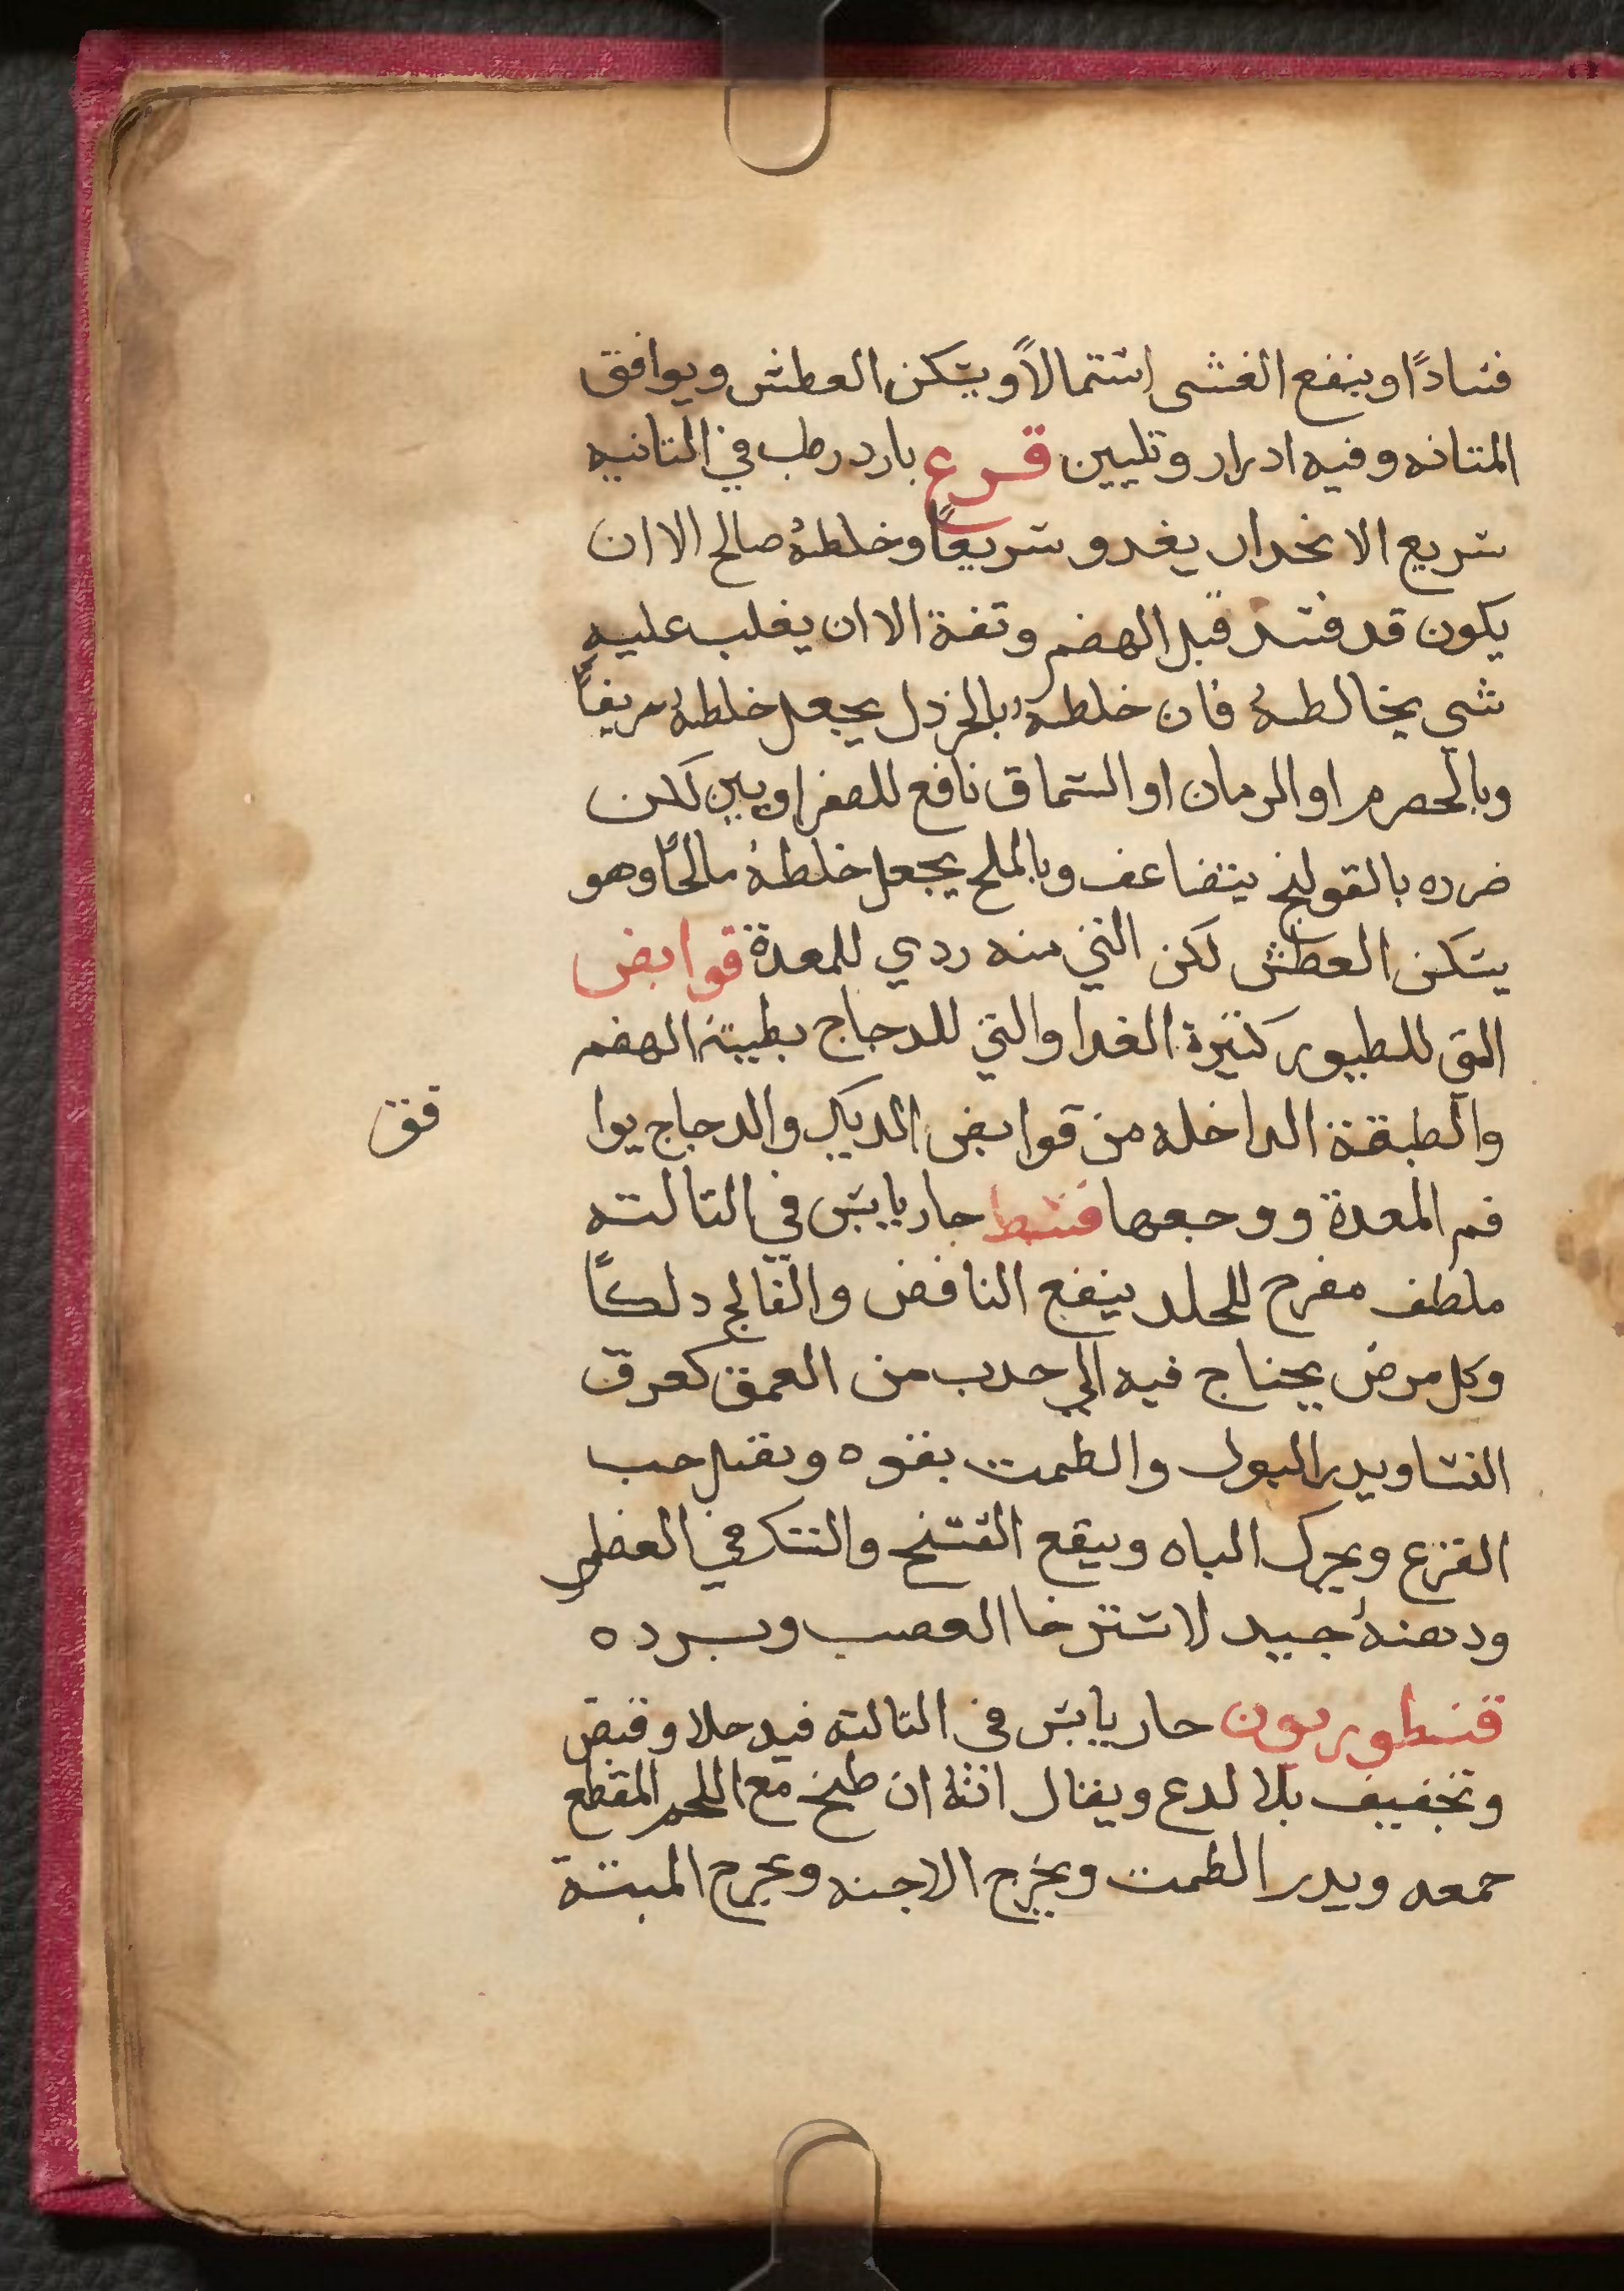 فسادًا وينفع الغشى اشتمالاً ويسكن العطش ويوافق
المثانه وفيه ادرار وتليين قرع بارد رطب في الثانيه
سريع الانحدار يغدو سريعًا وخلطهُ صالح الا ان
يكون قد فسد قبل الهضم وتفة الا ان يغلب عليه
شي يخالطهُ فان خلطهُ بالخردل يجعل خلطهُ حريفًا
وبالحصرم او الرمان او السماق نافع للصفراويين لكن
ضرره بالقولنج يتضاعف وبالملح يجعل خلطهُ مالحًا وهو
يسكن العطش لكن الني منه ردي للمعدة قوابض
التي للطيور كثيرة الغدا والتي للدجاج بطيئة الهضم
والطبقة الداخله من قوابض الديك والدجاج يوا
فق
فم المعدة ووجعها قسط حار يابس في الثالثه
ملطف مفرح للجلد ينفع النافض والفالج دلكًا
وكل مرض يحتاج فيه الي جدب من العمق كعرق
النسا ويدر البول والطمث بقوه ويقتل حب
القرع ويحرك الباه وينفع الفسخ والهتك في العضلم
ودهنهُ جيد لاسترخا العصب وبرده
قنطوريون حار يابس في الثالثه فيه جلا وقبض
وتجفيف بلا لدع ويقال انهُ ان طبخ مع اللحم المقطع
جمعه ويدر الطمث ويخرج الاجنه ويخرج الميتة